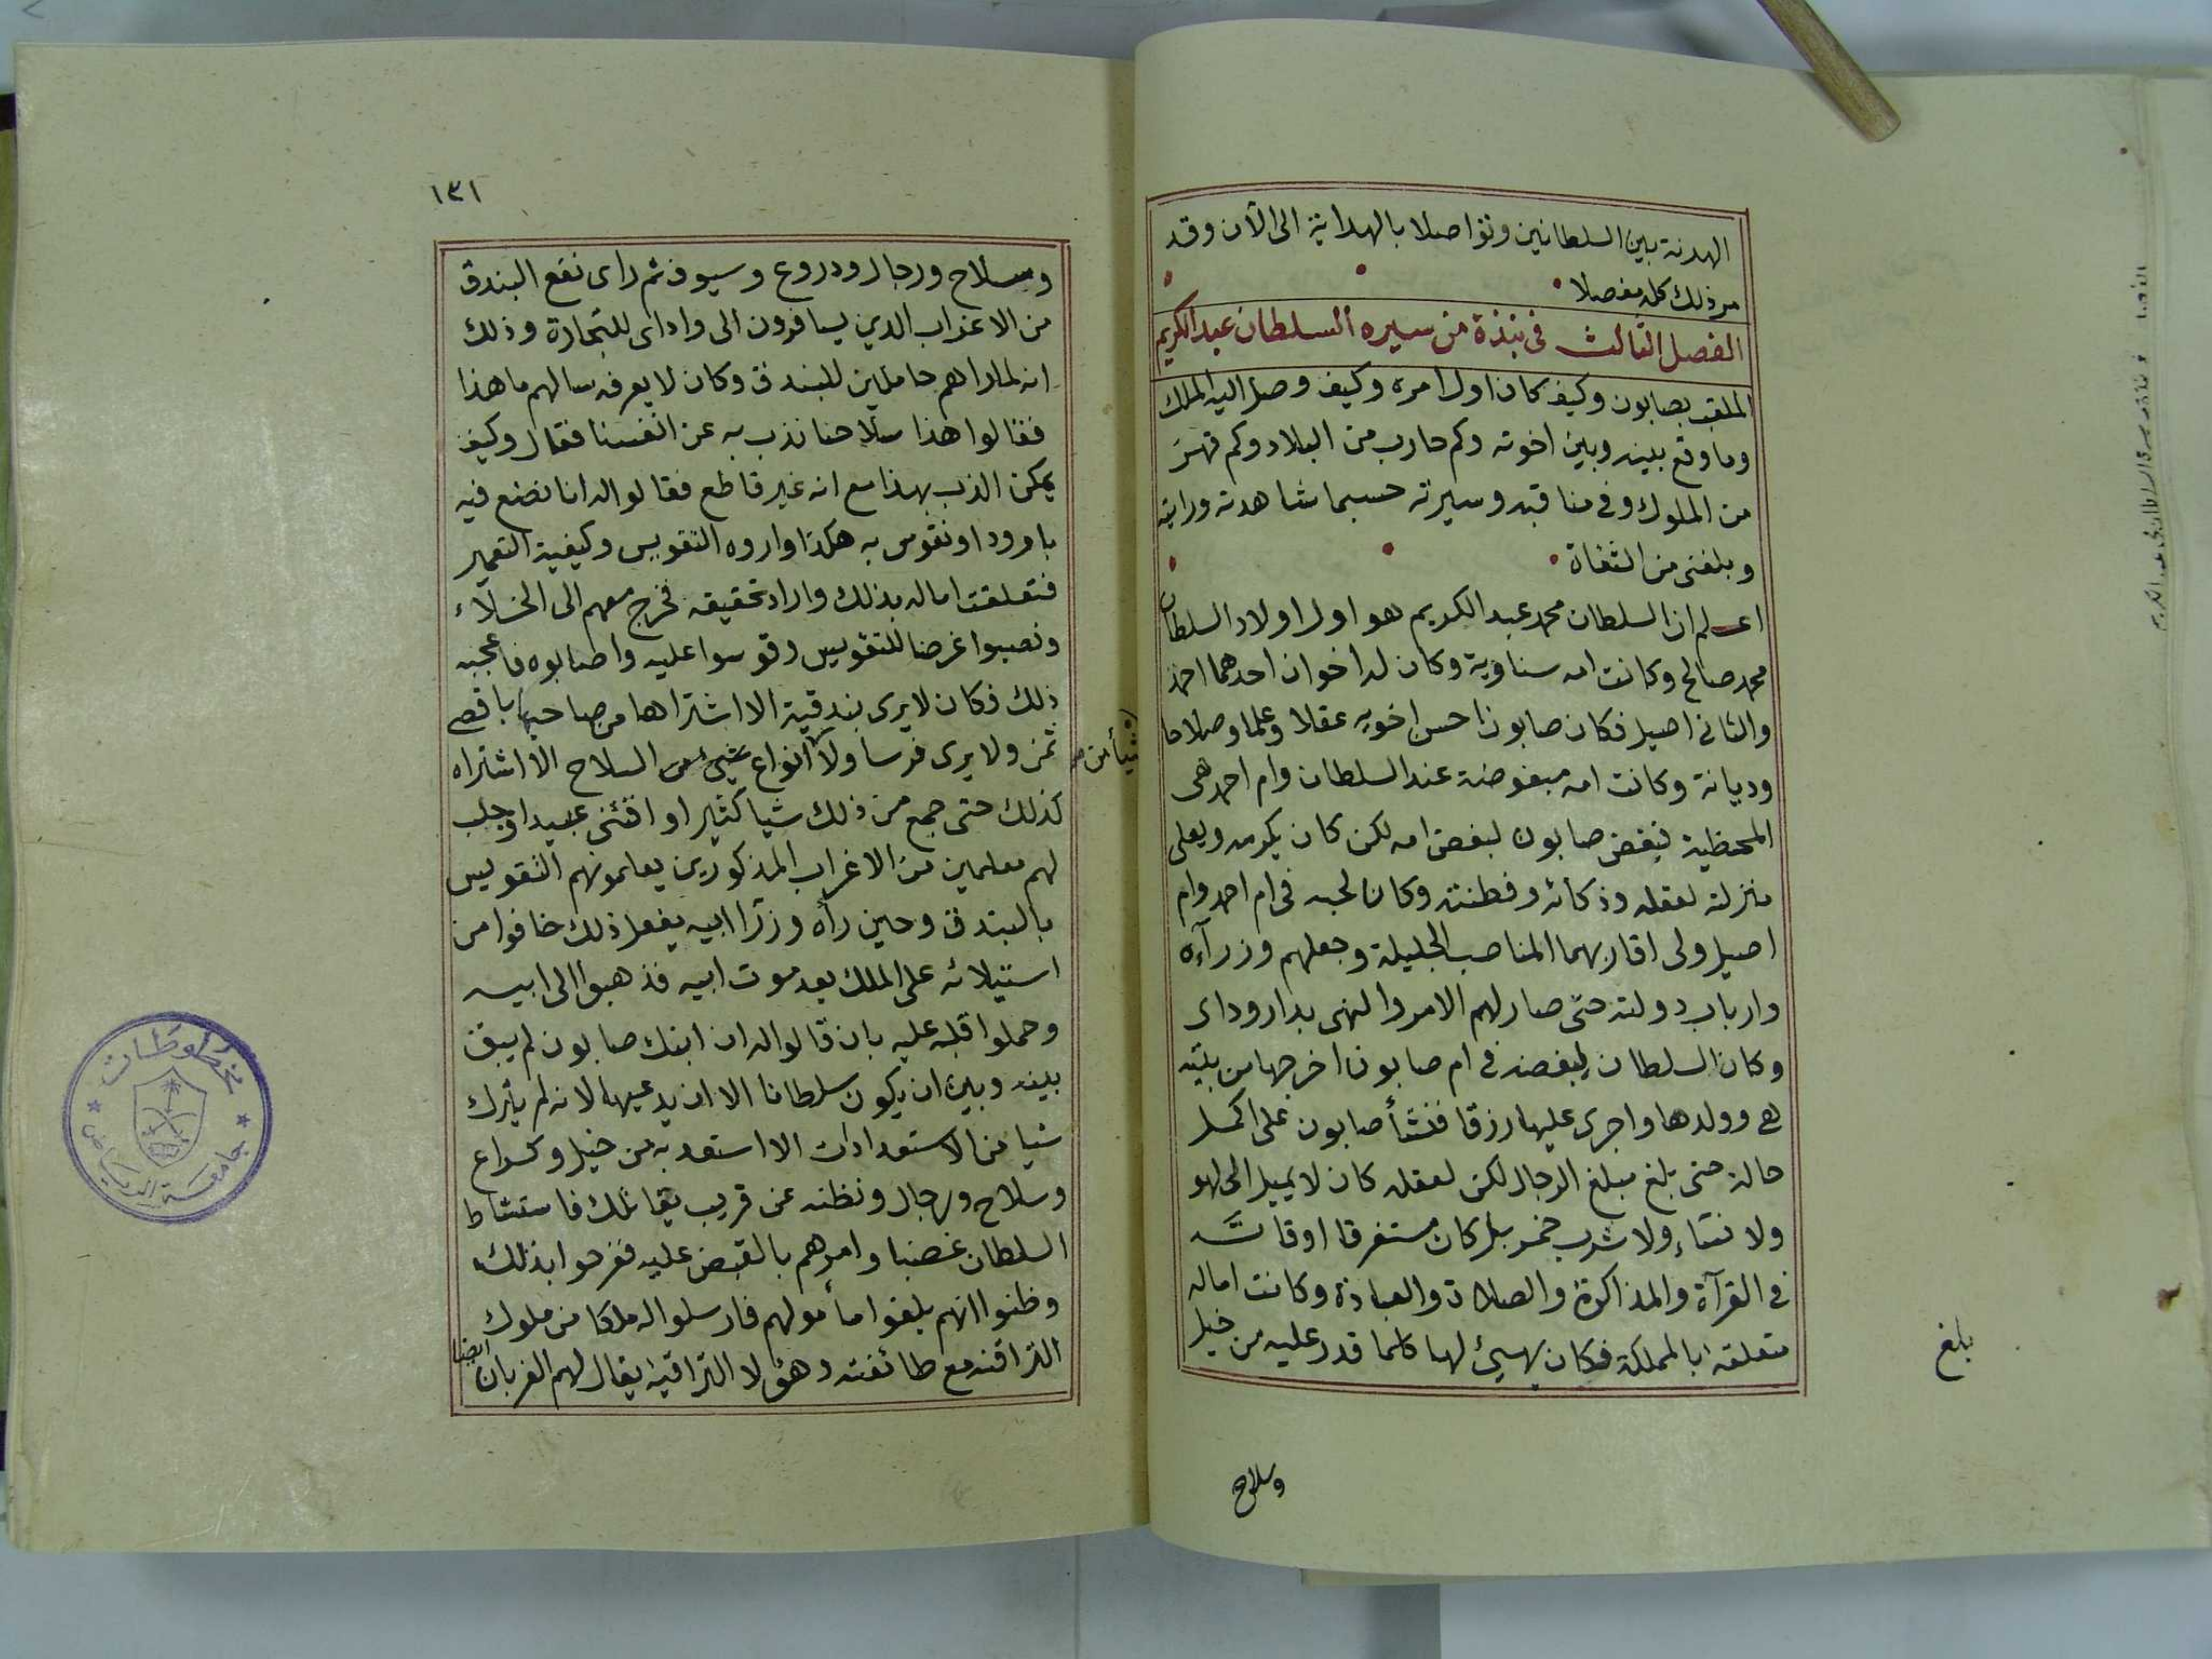 الهدنة بين السلطانين وتواصلا بالهداية الى الآن وقد
مر ذلك كله مفصلا
الفصل الثالث في نبذة من سيره السلطان عبد الكريم
الملقب بصابون وكيف كان اول امره وكيف وصل اليه الملك
وما وقع بينه وبين اخوته وكم حارب من البلاد وكم قهر
من الملوك وفي مناقبه وسيرته حسبما شاهدته ورايته
وبلغني من الثقاة
اعلم ان السلطان محمد عبد الكريم هو اول اولاد السلطان
محمد صالح وكانت امه سناوية وكان له اخوان احدهما احمد
والثاني اصيل فكان صابون احسن اخويه عقلا وعلما وصلاحا
وديانة وكانت امه مبغوضة عند السلطان وام احمد هى
المحظية فبغض صابون لبغض امه لكن كان يكرمه ويعلى
منزلته لعقله وذكائه وفطنته وكان لحبه في ام احمد وام
اصيل ولى اقاربهما المناصب الجليلة وجعلهم وزرآءه
وارباب دولته حتى صار لهم الامر والنهى بدار وداى
وكان السلطان لبغضه في ام صابون اخرجها من بيته
هي وولدها واجرى عليها رزقا فنشأ صابون على اكمل
حالة حتى بلغ مبلغ الرجال لكن لعقله كان لا يميل الى لهو
ولا نساء ولا شرب خمر بل كان مستغرقا اوقاته
في القرآة والمذاكرة والصلاة والعبادة وكانت اماله
متعلقة بالمملكة فكان يهيئ لها كلما قدر عليه من خيل
بلغ
وسلاح
١٣١
وسلاح ورجال ودروع وسيوف ثم راى نفع البندق
من الاغراب الذين يسافرون الى واداى للتجارة وذلك
انه لما راهم حاملين للبندق وكان لا يعرفه سالهم ما هذا
فقالوا هذا سلاحنا نذب به عن انفسنا فقال وكيف
يمكن الذب بهذا مع انه غير قاطع فقالوا له انا نضع فيه
بارودا ونقوس به هكذا واروه التقويس وكيفية التعمير
فتعلقت اماله بذلك واراد تحقيقه فخرج معهم الى الخلآء
ونصبوا غرضا للتقويس وقوسوا عليه واصابوه فاعجبه
ذلك فكان لا يرى بندقية الا اشتراها من صاحبها باقصى
ثمن ولا يرى فرسا ولا انواع شيئ من السلاح الا اشتراه
شيأ من
كذلك حتى جمع من ذلك شيا كثيرا واقتنى عبيدا وجلب
لهم معلمين من الاغراب المذكورين يعلمونهم التقويس
بالبندق وحين رأه وزرا ابيه يفعل ذلك خافوا من
استيلائه على الملك بعد موت ابيه فذهبوا الى ابيه
وحملوا قلبه عليه بان قالوا له ان ابنك صابون لم يبق
بينه وبين ان يكون سلطانا الا ان يدعيها لانه لم يترك
شيا من الاستعدادات الا استعد به من خيل وكراع
وسلاح ورجال ونظنه عن قريب يقاتلك فاستشاط
السلطان غضبا وامرهم بالقبض عليه ففرحوا بذلك
وظنوا انهم بلغوا مأمولهم فارسلوا له ملكا من ملوك
التراقنه مع طائفته وهؤلا التراقيه يقال لهم الغربان ايضا
مخطوطات
جامعة الرياض